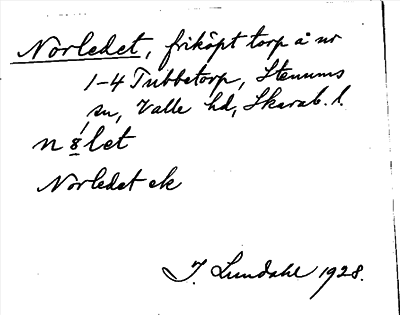 Norledet, friköpt torp å nr
1-4 Tubbetorp, Stenums
sn, Valle hd, Skarab. l.
n8let
Norledet ek
I. Lundahl 1928.